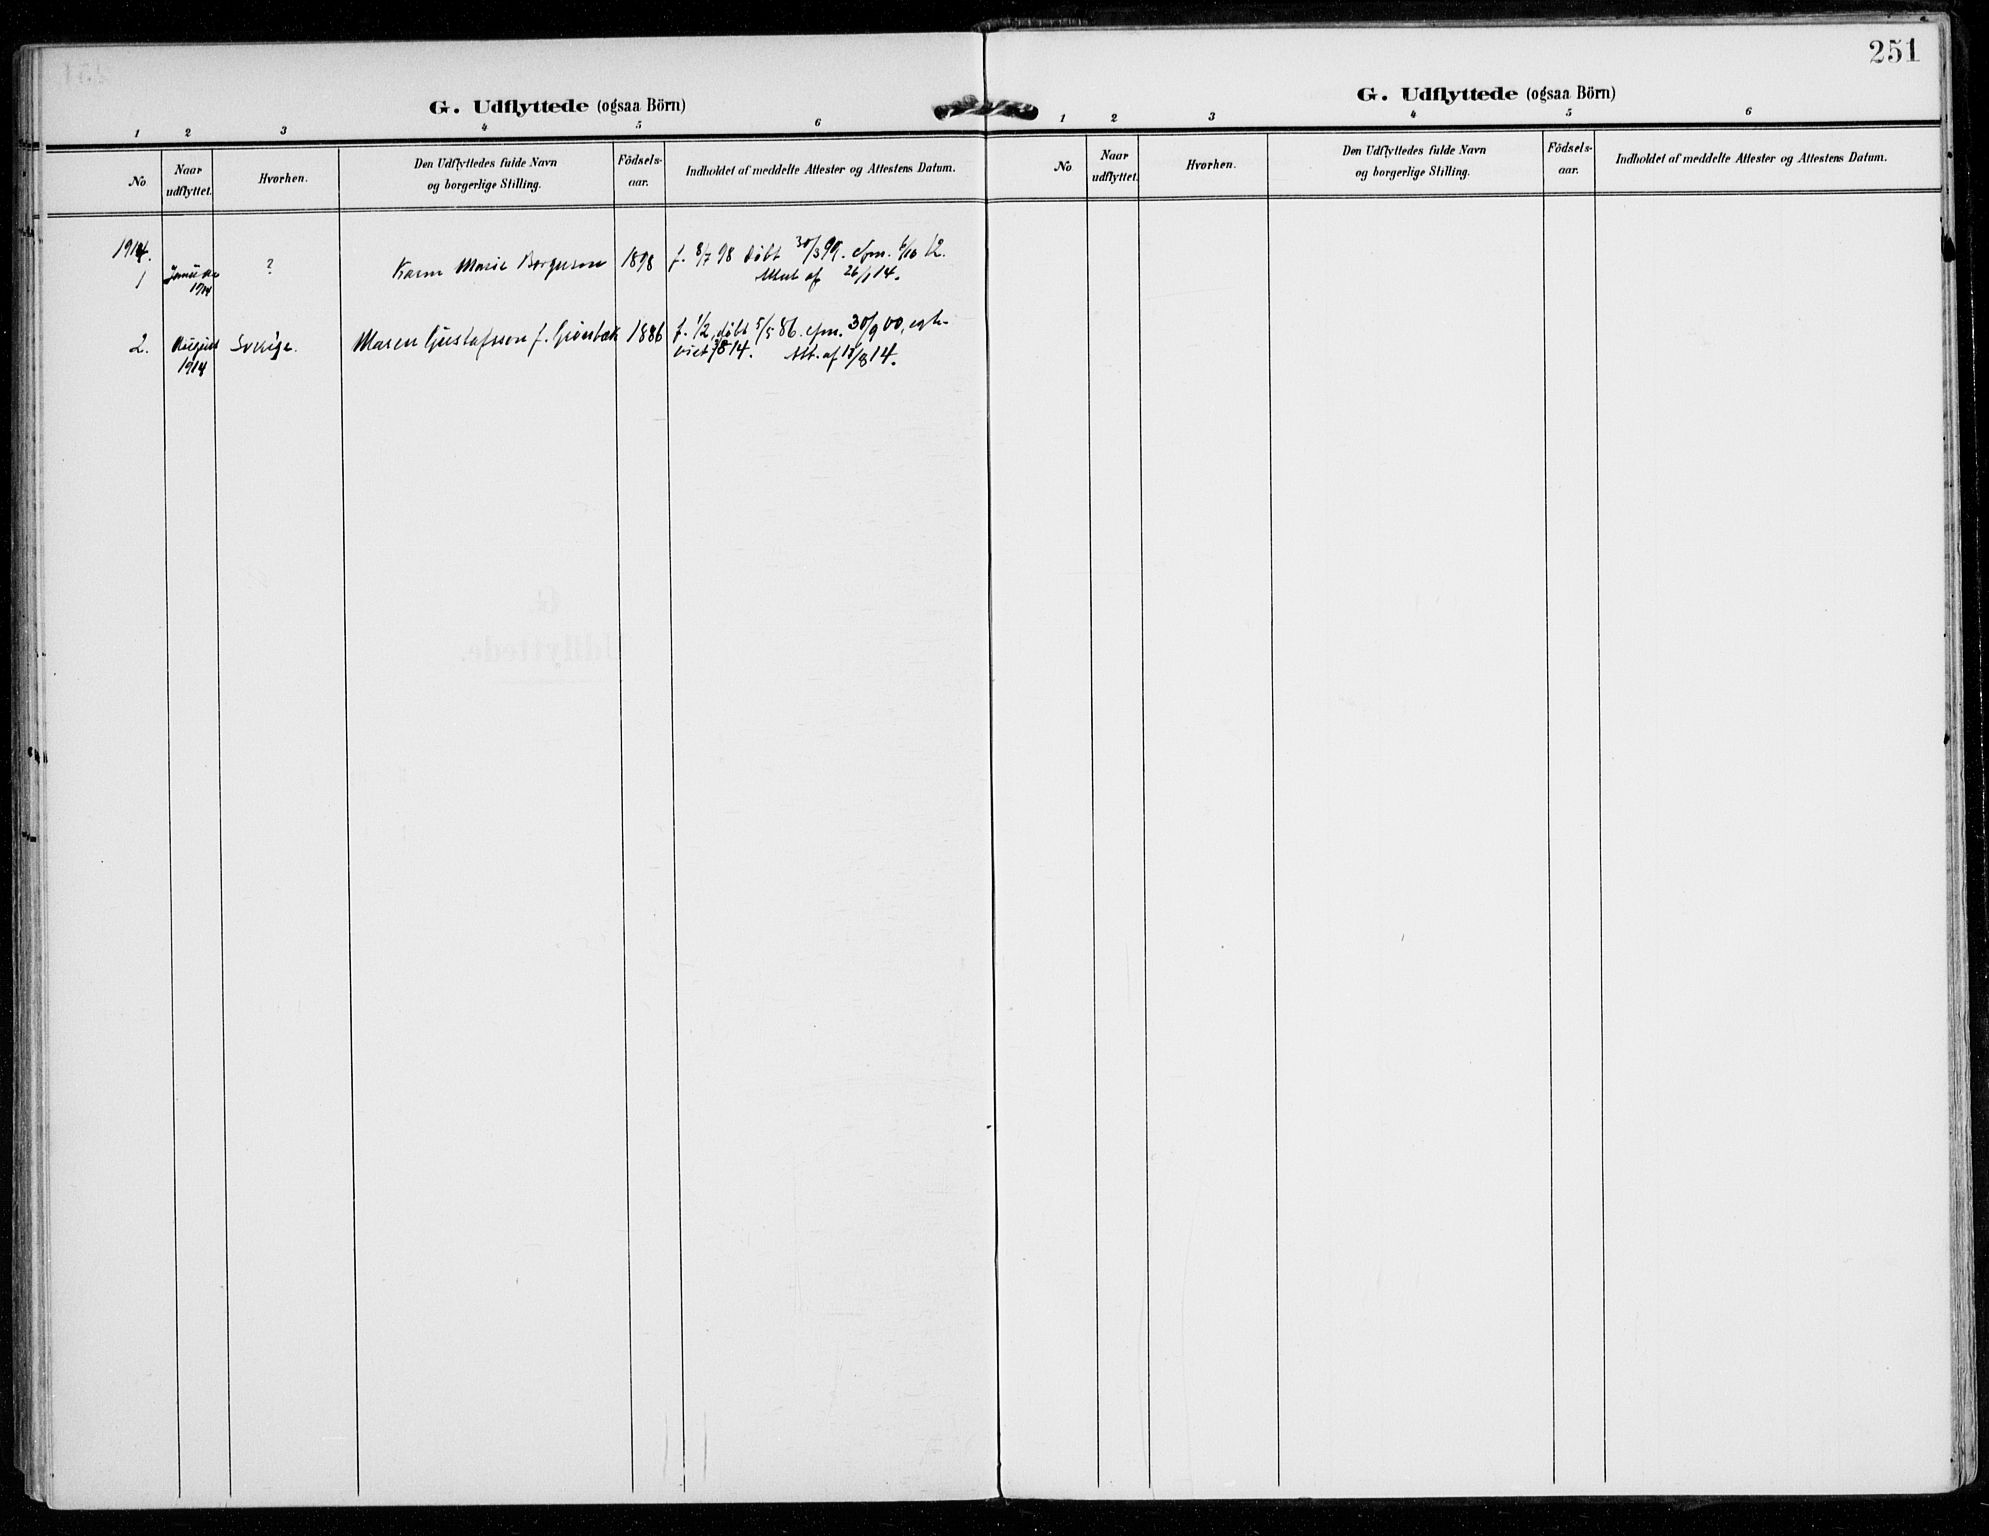 251
G. Udflyttede (ogsaa Börn)
1 2 3 4 5 6
No
Naar
udflyttet.
Hvorhen.
Den Udflyttedes fulde Navn
og borgerlige Stilling.
Födsels-
aar.
Indholdet af meddelte Attester og Attestens Datum.
1914.
1 Januar ? Karen Marie Borgersen 1898 f. 8/7 98 døbt 30/3 99. cfm. 6/10 12.
1914 Attest af 26/1 14.
2. August Sverige. Maren Gustafsson f. 1886 f. 1/2, døbt 5/5 86. cfm. 30/9 00, egte-
1914 viet 14. Att. af 15/8 14.
G. Udflyttede (ogsaa Börn)
1 2 3 4 5 6
No
Naar
udflyttet.
Hvorhen.
Den Udflyttedes fulde Navn
og borgerlige Stilling.
Födsels-
aar.
Indholdet af meddelte Attester og Attestens Datum.